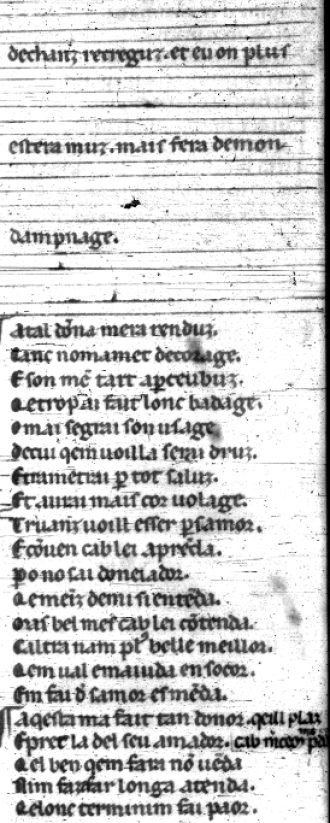 dechantz retreguz. et eu on plus
estera muz. mais fera demon
dampnage.
Atal dõna mera renduz.
Canc nomamet decorage.
E son mẽ tart aperceubuz.
Qetrop ai fait lonc badage.
Omai segrai son usage
Decui qem uoilla serai druz.
Etrametrai p tot saluz.
Et aurai mais cor uolage.
Truanz uoill esser p samor.
E cõuen cab lei aprẽda.
Po no sai doneiador.
Qemeiz demi si entẽda.
Mas bel mes cab lei cõtenda.
Caltra nam pl9 belle meillor.
Qem ual emaiuda ensocor.
Em fai d samor esmẽda.
Aqesta ma fait tan donor. qeill plaz
Epret la del seu amador.
Qel ben qem fara nõ ueda
Nim fazfar longa atenda.
Qe lonc terminim fai paor.